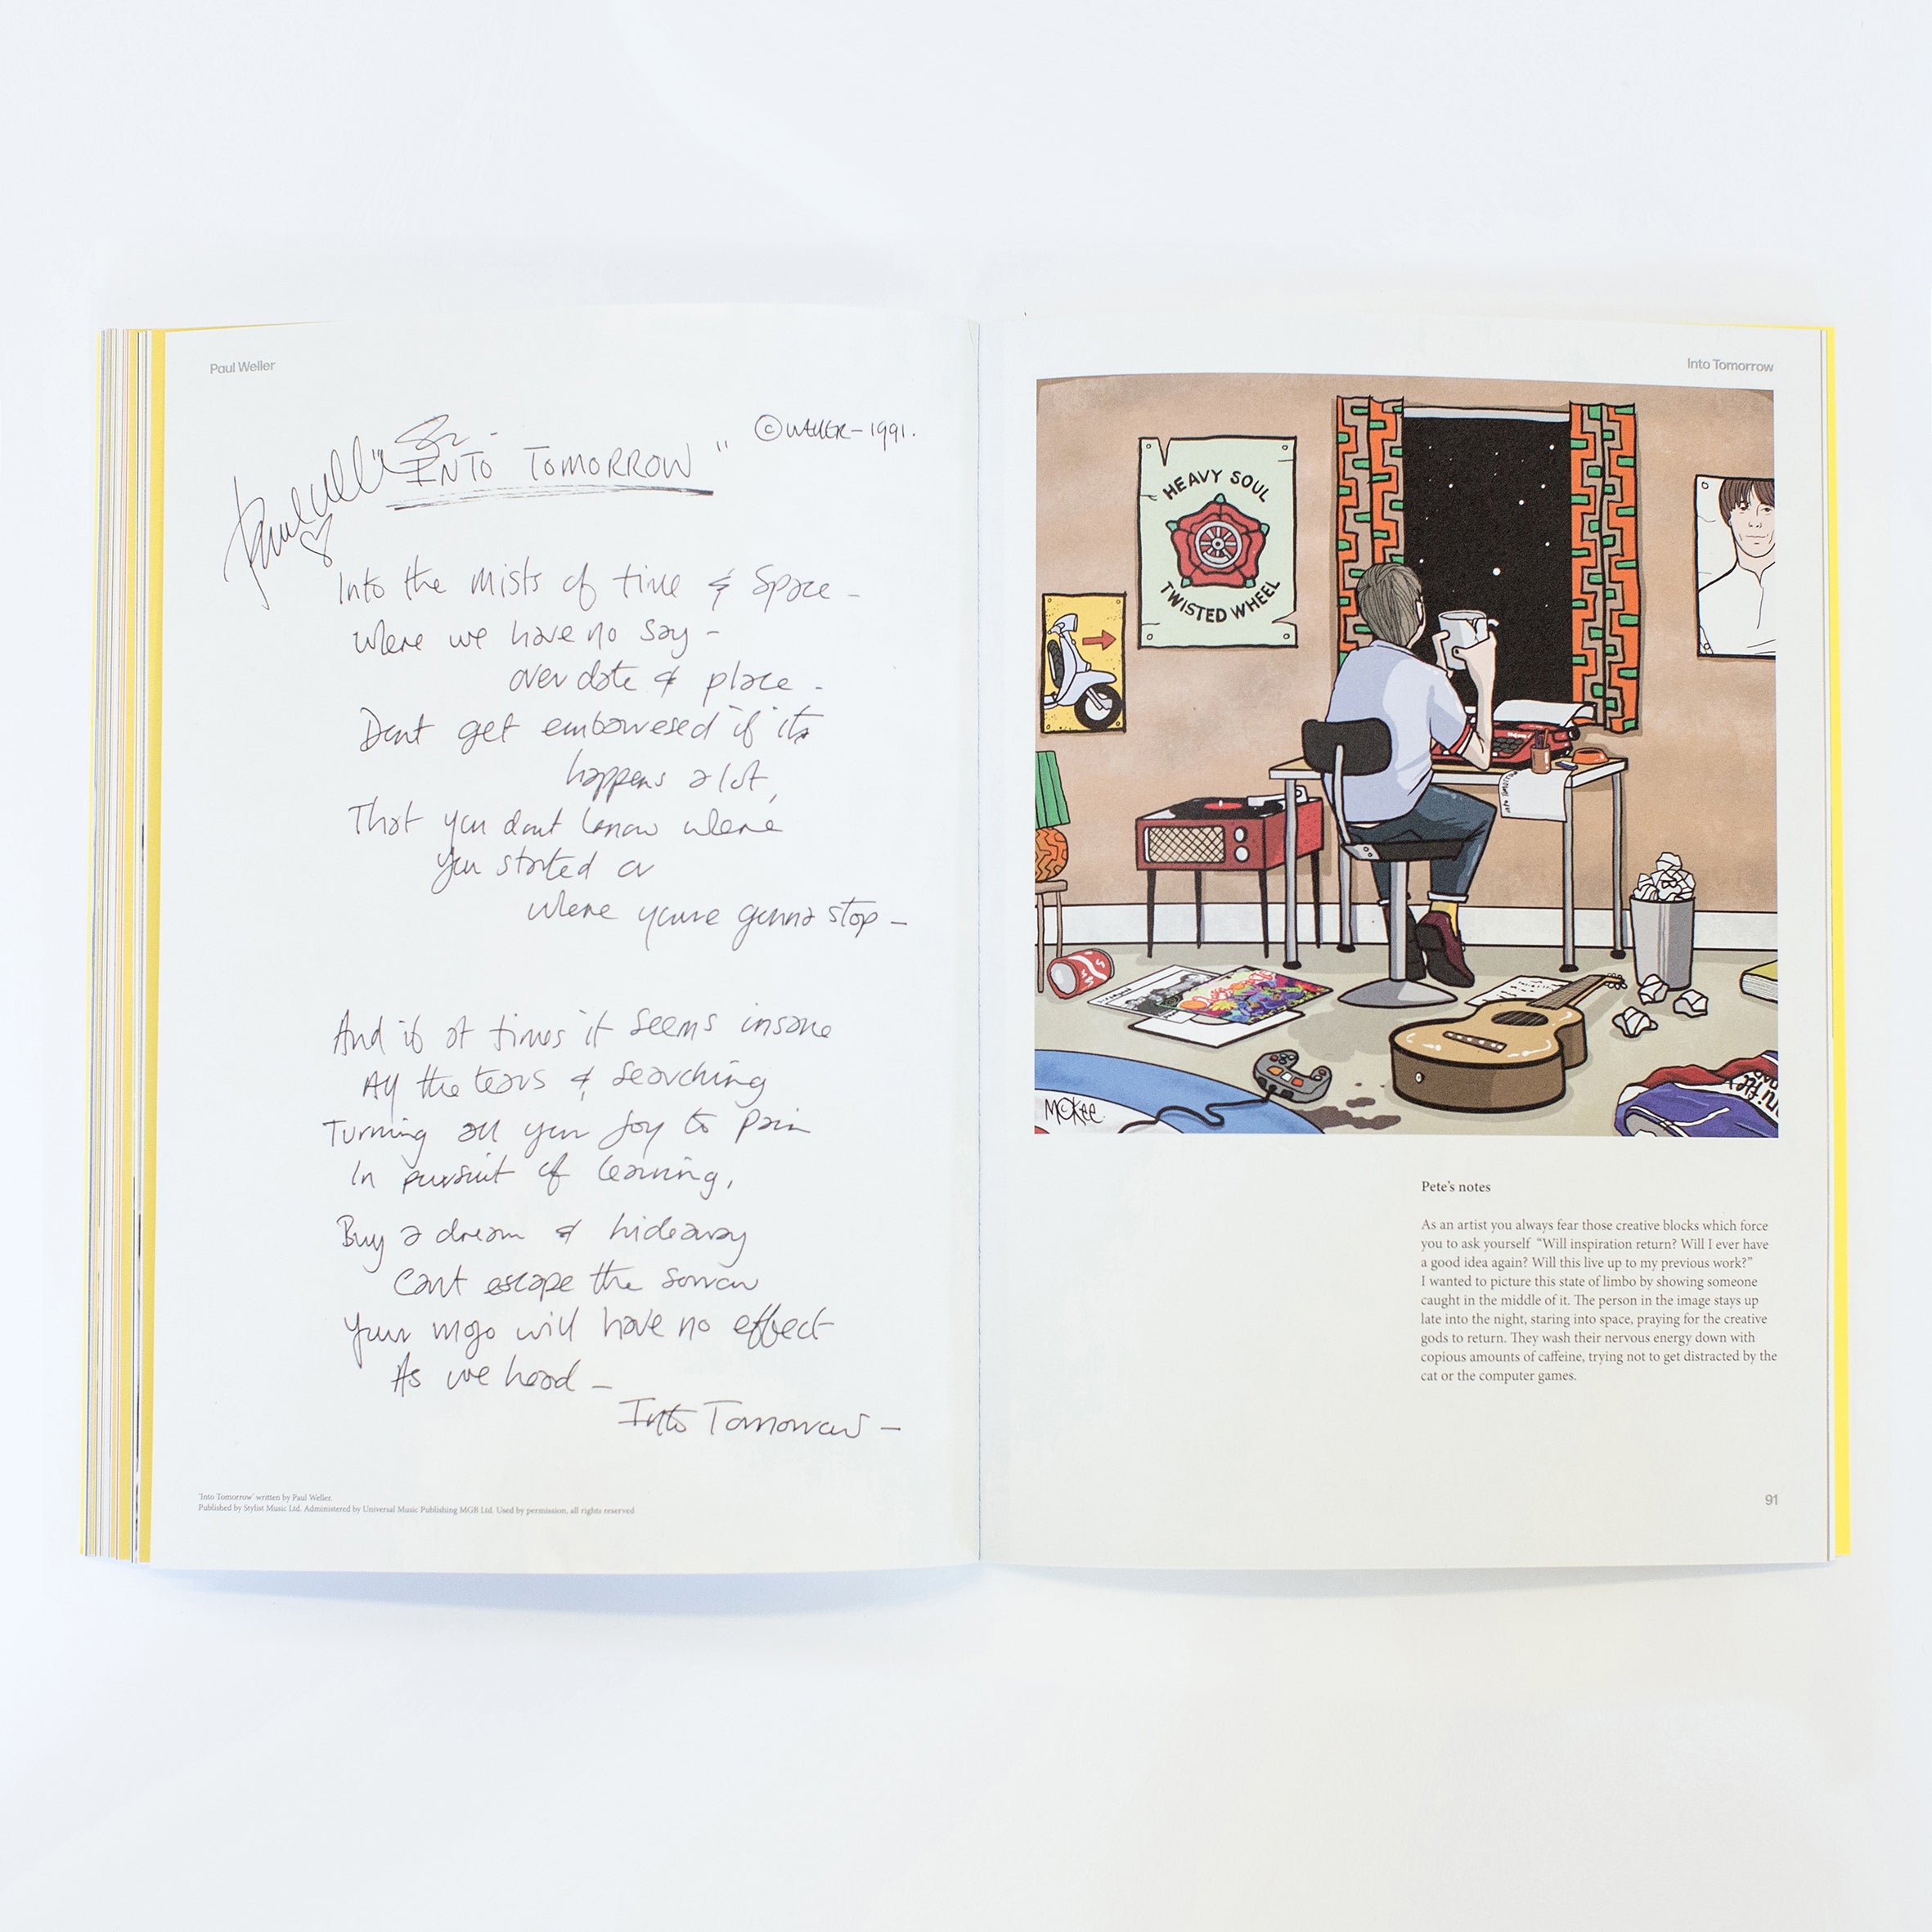 Paul Weller
Paul Well
" INTO TOMORROW "
© WELLER - 1991.
Into the mists of time & Space -
Where we have no say -
over date & place -
Dont get embarresed if it
happens a lot,
That you dont know where
you started or
where youre gonna stop -
And if at times it seems insane
All the tears & searching
Turning all your Joy to Pain
In pursuit of learning,
Buy a dream & hideaway
Cant escape the sorrow
Your mojo will have no effect
As we head -
Into Tomorrow -
'Into Tomorrow' written by Paul Weller.
Published by Stylist Music Ltd. Administered by Universal Music Publishing MGB Ltd. Used by permission, all rights reserved
Into Tomorrow
HEAVY SOUL
TWISTED WHEEL
into Tomorrow
McKee
Pete's notes
As an artist you always fear those creative blocks which force
you to ask yourself "Will inspiration return? Will I ever have
a good idea again? Will this live up to my previous work?"
I wanted to picture this state of limbo by showing someone
caught in the middle of it. The person in the image stays up
late into the night, staring into space, praying for the creative
gods to return. They wash their nervous energy down with
copious amounts of caffeine, trying not to get distracted by the
cat or the computer games.
91